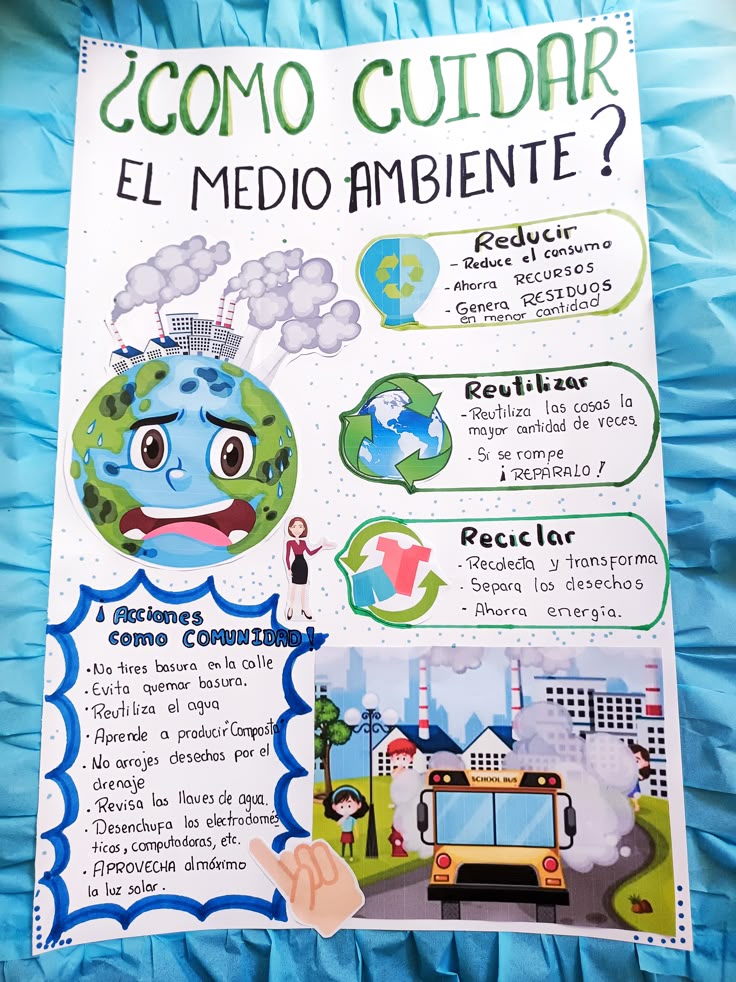 ¿COMO CUIDAR
EL MEDIO AMBIENTE?
Reducir
- Reduce el consumo
- Ahorra RECURSOS
- Genera RESIDUOS
en menor cantidad
Reutilizar
- Reutiliza las cosas la
mayor cantidad de veces.
. Si se rompe
¡REPARALO!
Reciclar
- Recolecta y transforma
- Separa los desechos
- Ahorra energía.
¡Acciones
como COMUNIDAD!
• No tires basura en la calle
• Evita quemar basura.
• Reutiliza el agua
• Aprende a producir "Composta"
• No arrojes desechos por el
drenaje
• Revisa las llaves de agua.
• Desenchufa los electrodomés
ticos, computadoras, etc.
• APROVECHA al máximo
la luz solar.
SCHOOL BUS